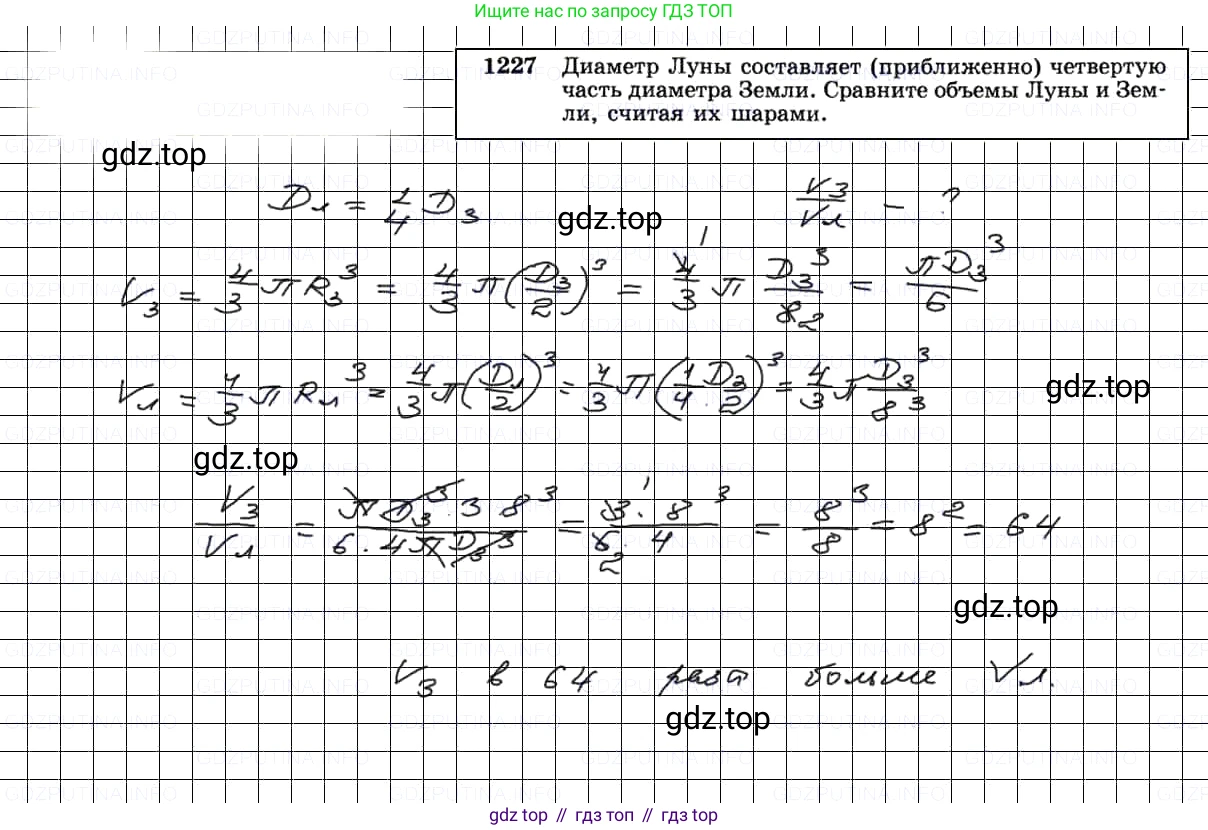 Ищите нас по запросу ГДЗ ТОП
1227 Диаметр Луны составляет (приближенно) четвертую
часть диаметра Земли. Сравните объемы Луны и Зем-
ли, считая их шарами.
gdz.top
Dл = 1/4 Dз    Vз/Vл - ?
gdz.top
Vз = 4/3 π Rз³ = 4/3 π (Dз/2)³ = 4/3 π Dз³/8 = πDз³/6
Vл = 4/3 π Rл³ = 4/3 π (Dл/2)³ = 4/3 π (1/4 · Dз/2)³ = 4/3 π Dз³/8³
gdz.top
gdz.top
Vз/Vл = π Dз³ · 3 · 8³ / 6 · 4 π Dз³ = 3 · 8³ / 6 · 4 = 8³/8 = 8² = 64
gdz.top
Vз в 64 раза больше Vл.
gdz.top
gdz top // гдз топ // гдз top